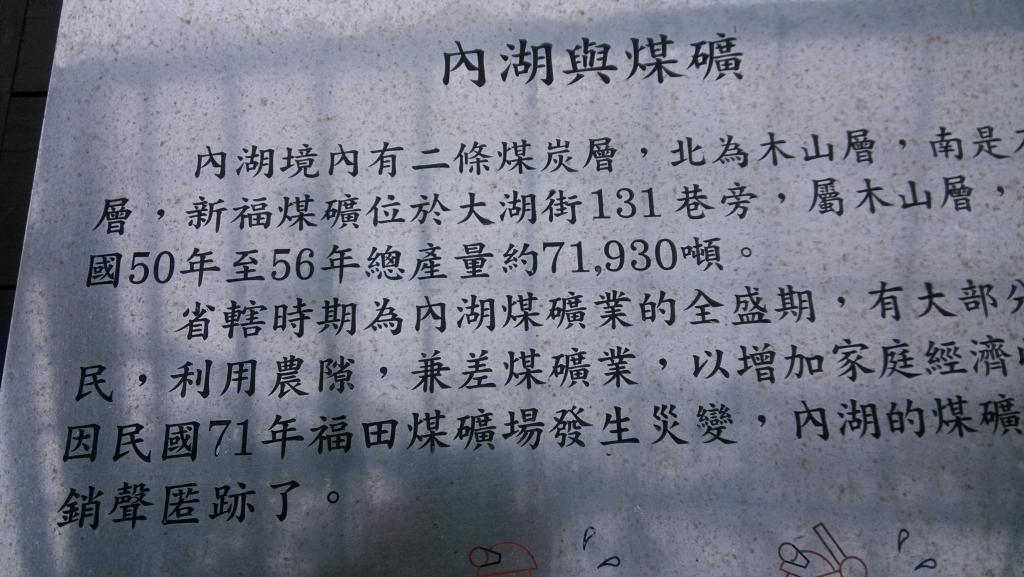 內湖與煤礦
內湖境內有二條煤炭層，北為木山層，南是
層，新福煤礦位於大湖街131巷旁，屬木山層，
國50年至56年總產量約71,930噸。
省轄時期為內湖煤礦業的全盛期，有大部分
民，利用農隙，兼差煤礦業，以增加家庭經濟
因民國71年福田煤礦場發生災變，內湖的煤礦
銷聲匿跡了。